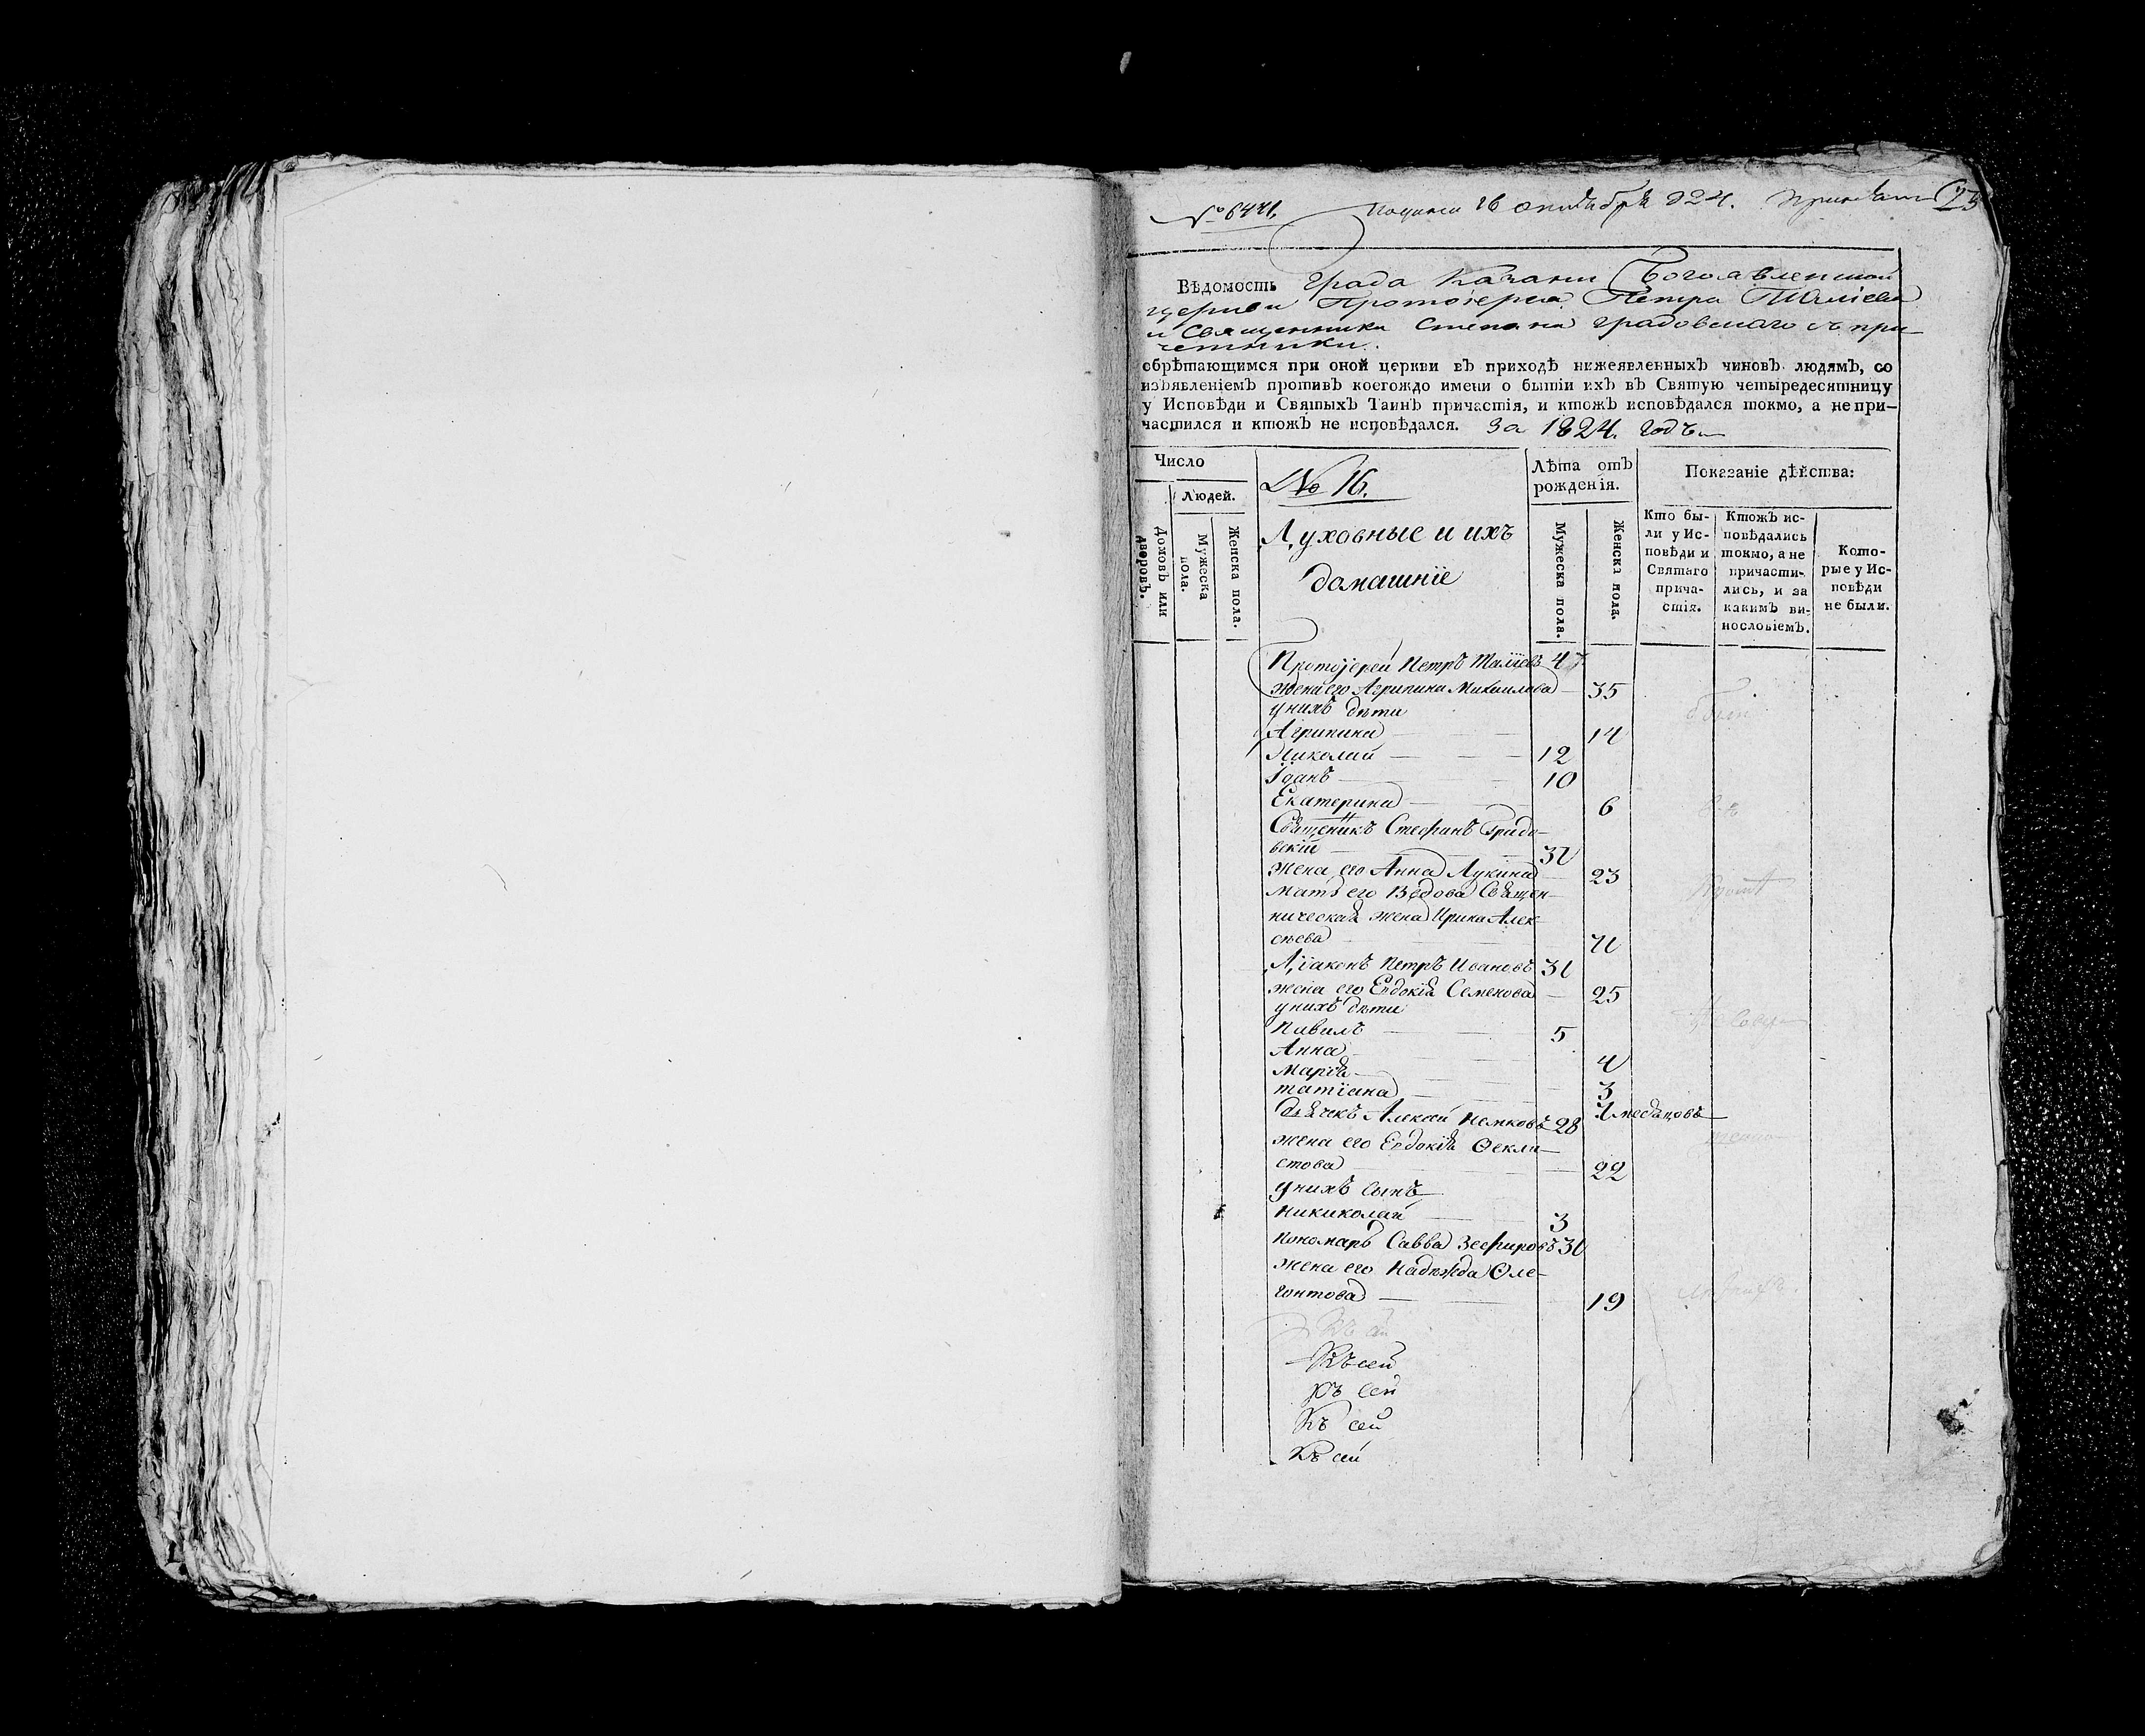 № 6471. 16 октября 824. 73
Вѣдомость града Казани Богоявленской
церкви Протоіерея Петра Таліева
и Священника Степана градовскаго съ при-
четники.
обрѣтающимся при оной церкви въ приходѣ нижеявленныхъ чиновъ людямъ, со
изъявленіемъ противъ коегождо имени о бытіи ихъ въ Святую четыредесятницу
у Исповѣди и Святыхъ Таинъ причастія, и ктожъ исповѣдался токмо, а непри-
частился и ктожъ не исповѣдался. За 1824. годъ
Число
людей.
Домовъ или дворовъ.
Мужеска пола.
Женска пола.
№ 16.
Духовные и ихъ
домашніе
Лѣта отъ
рожденія.
Мужеска пола.
Женска пола.
Показаніе дѣйства:
Кто бы-
ли у Ис-
повѣди и
Святаго
прича-
стія.
Ктожъ ис-
повѣдались
токмо, а не
причасти-
лись, и за
какимъ ви-
нословіемъ.
Кото-
рые у Ис-
повѣди
не были.
Протоіерей Петръ Таліевъ 47
жена его Агрипина Михаилова 35
у нихъ дѣти
Агрипина 14
Николай 12
Іоанъ 10
Екатерина 6
Священикъ Стефанъ Градо-
вскій 32
жена его Анна Лукина 23
мать его Вдова Священ-
ническая жена Ирина Алек
сѣева
Діаконъ Петръ Ивановъ 31
жена его Евдокія Семенова 25
у нихъ дѣти
Павилъ 5
Анна 4
Марія 3
татіана
Дьячекъ Алексѣй Немковъ 28
жена его Евдокія Ѳекли-
стова 22
у нихъ сынъ
Никиколай 3
Пономарь Савва Зефировъ 31
жена его Надежда Ѳле-
гонтова 19
Къ сей
Къ сей
Къ сей
Къ сей
Къ сей